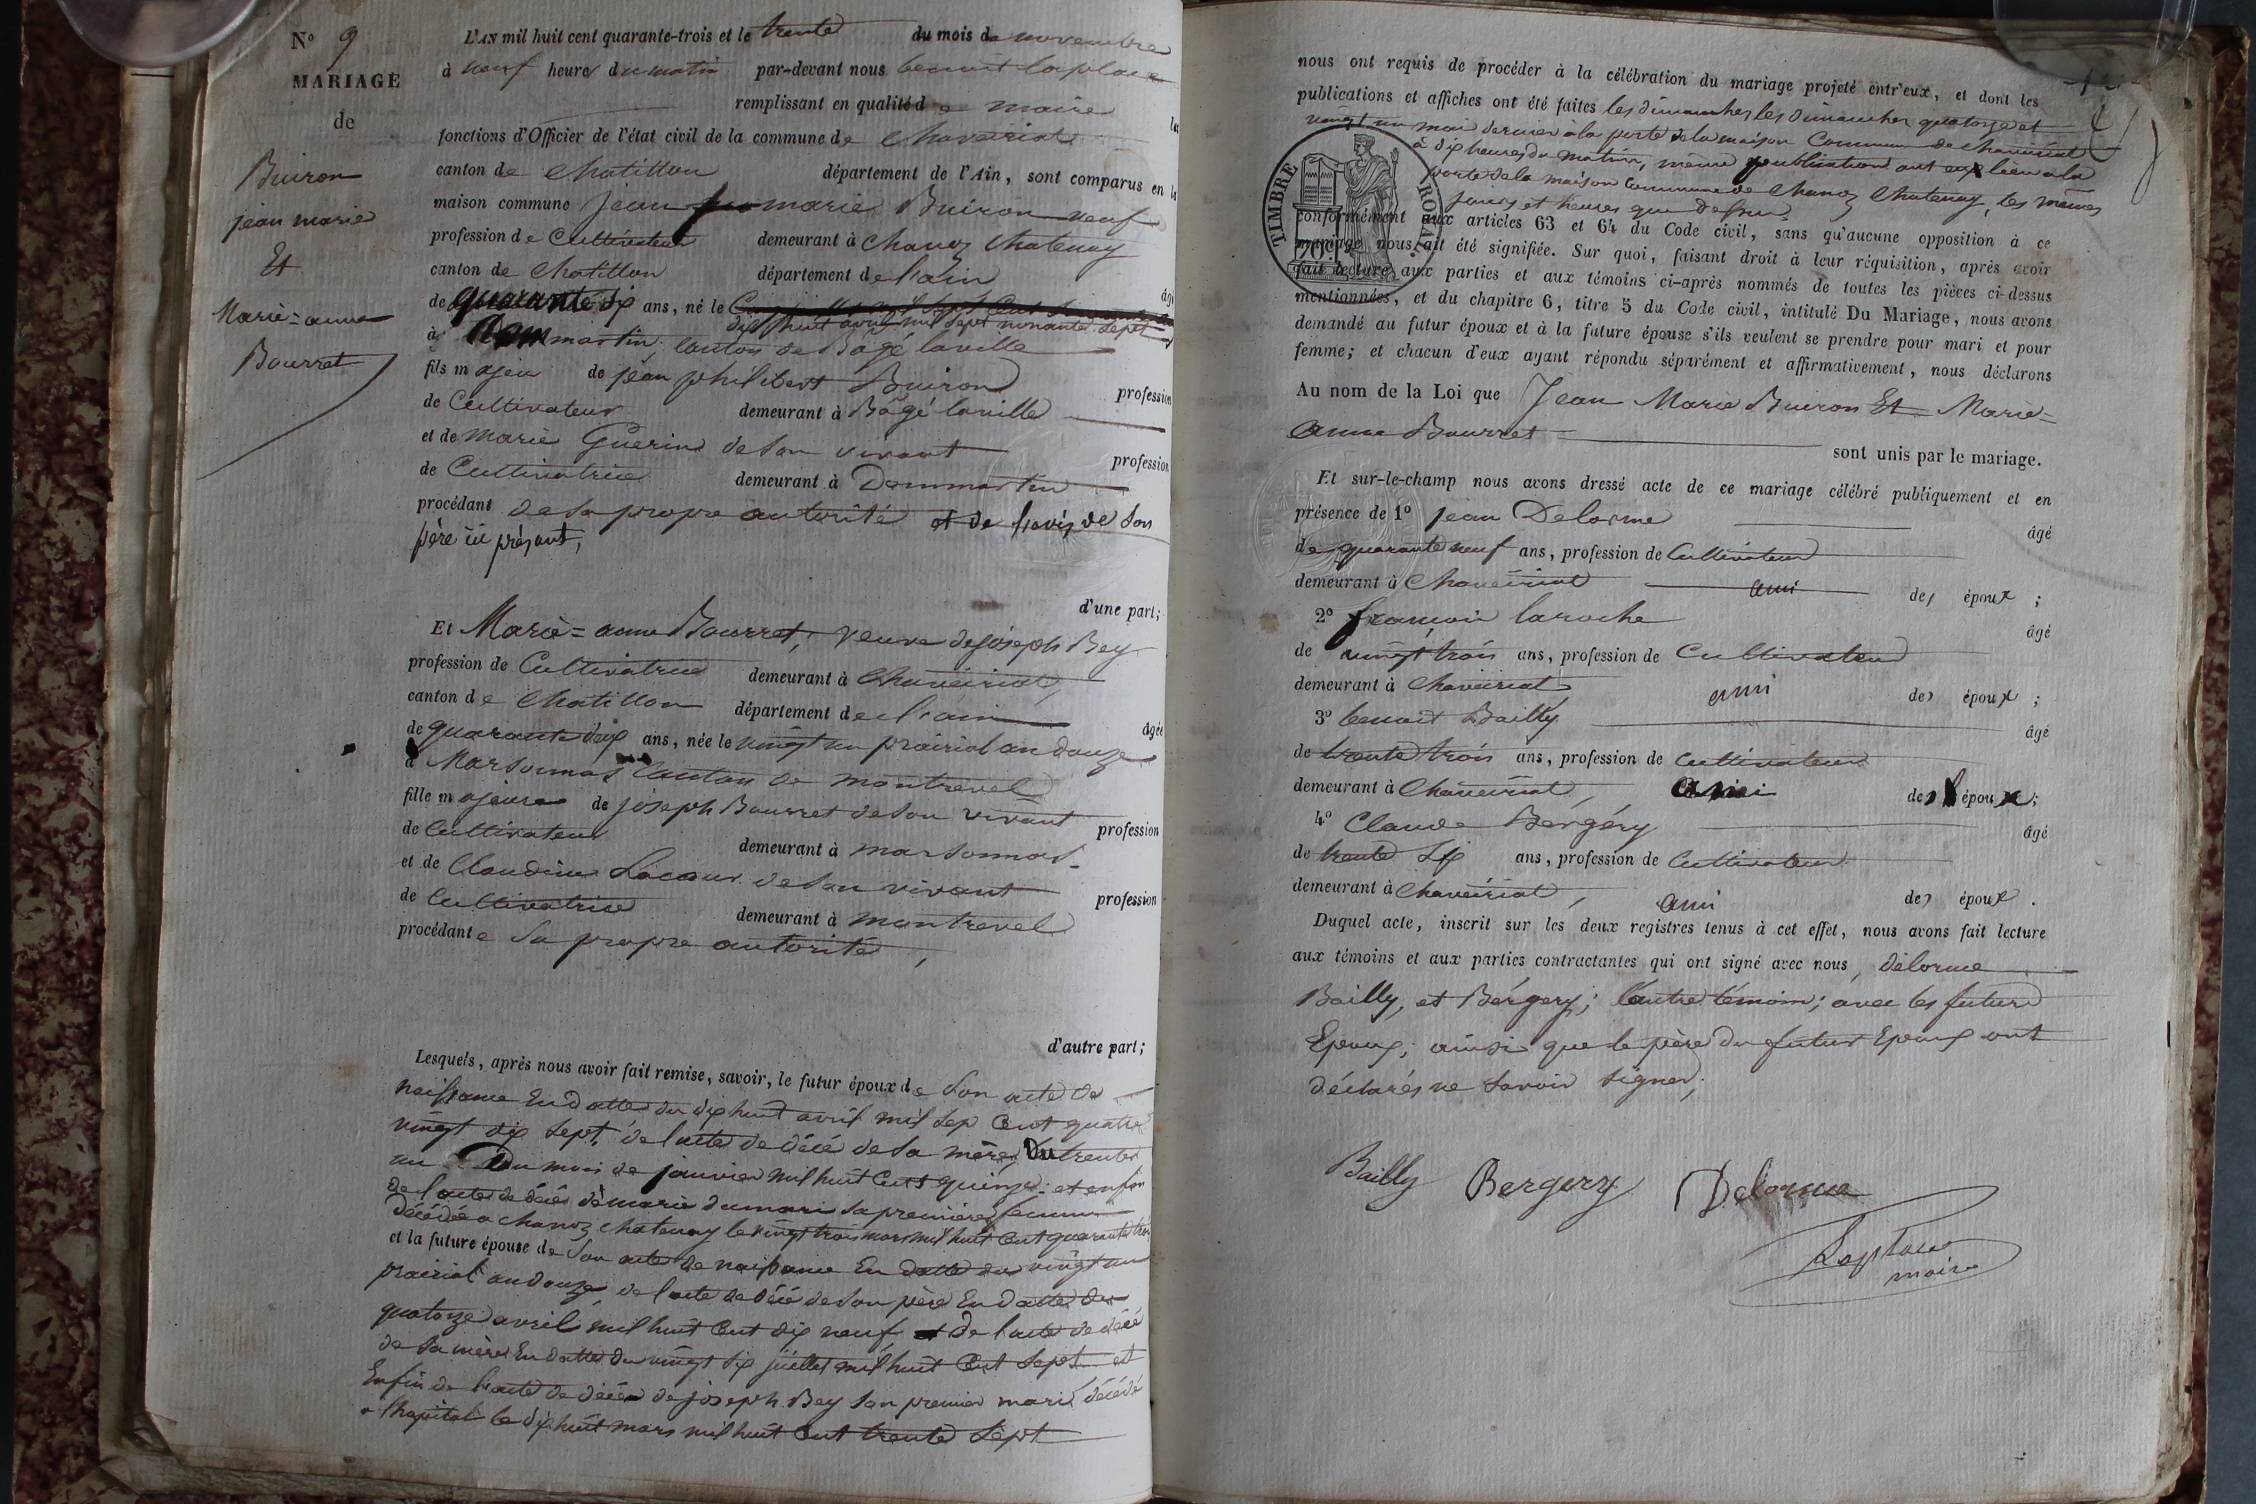 N° 9
MARIAGE
de
Buiron
jean marie
Et
Marie=anne
Bourret
L'AN mil huit cent quarante-trois et le trente du mois de novembre
à neuf heures du matin par-devant nous benoit laplace
remplissant en qualité de maire les
fonctions d'Officier de l'état civil de la commune de Chaveiriat
canton de Chatillon département de l'Ain, sont comparus en la
maison commune Jean marie Buiron veuf
profession de Cultivateur demeurant à Chanoz Chatenay
canton de Chatillon département de l'ain
âgé
de quarante six ans, né le
dix huit avril mil sept nonante sept
à Dommartin canton de Bagé laville
fils majeur de jean philibert Buiron profession
de Cultivateur demeurant à Bagé laville
et de marie Guerin de son vivant profession
de Cultivatrice demeurant à Dommartin
procédant de sa propre autorité et de l'avis de son
père ici présent,
d'une part;
Et Marie=anne Bourret, veuve de joseph Bey
profession de Cultivatrice demeurant à Chaveiriat,
canton de Chatillon département de l'ain
âgée
de quarante deux ans, née le vingt un prairial an douze
à Marsonnas Canton de montrevel
fille majeure de joseph Bourret de son vivant profession
de Cultivateur demeurant à marsonnas
et de Claudine Lacour de son vivant profession
de Cultivatrice demeurant à montrevel
procédante sa propre autorité,
d'autre part;
Lesquels, après nous avoir fait remise, savoir, le futur époux de son acte de
naissance En datte du dix huit avril mil sep Cent quatre
vingt dix sept, de l'acte de décé de sa mère, Du trente
un Du mois de janvier mil huit Cent quinze; et enfin
de l'acte de décé de marie dumari sa première femme
décédée a chanoz chatenay le vingt trois mars mil huit Cent quarante trois
et la future épouse de Son acte de naissance En datte du vingt un
prairial an douze de l'acte de décé de son père En datte du
quatorze avril mil huit Cent dix neuf et De l'acte de décé
de sa mère En datte du vingt six juillet mil huit Cent Sept et
Enfin de l'acte de décé de joseph Bey son premier mari décédé
a l'hopital le dix huit mars mil huit Cent trente Sept
nous ont requis de procéder à la célébration du mariage projeté entr'eux, et dont les
publications et affiches ont été faites les dimanches les Dimanches quatorze et
vingt un mai dernier à la porte de la maison Commune de Chaveiriat
à dix heures du matin, même publication ont eux lieu a la
porte de la maison Commune de Chanoz Chatenay, les mêmes
jours et heures que Dessus.
TIMBRE ROYAL
70
conformément aux articles 63 et 64 du Code civil, sans qu'aucune opposition à ce
mariage nous ait été signifiée. Sur quoi, faisant droit à leur réquisition, après avoir
fait lecture aux parties et aux témoins ci-après nommés de toutes les pièces ci-dessus
mentionnées, et du chapitre 6, titre 5 du Code civil, intitulé Du Mariage, nous avons
demandé au futur époux et à la future épouse s'ils veulent se prendre pour mari et pour
femme; et chacun d'eux ayant répondu séparément et affirmativement, nous déclarons
Au nom de la Loi que Jean Marie Buiron Et Marie=
anne Bourret
sont unis par le mariage.
Et sur-le-champ nous avons dressé acte de ce mariage célébré publiquement et en
présence de 1° jean Delorme âgé
de quarante neuf ans, profession de Cultivateur
demeurant à Chaveiriat ami des époux;
2° françois laroche âgé
de vingt trois ans, profession de Cultivateur
demeurant à Chaveiriat ami des époux;
3° benoit Bailly âgé
de trente trois ans, profession de Cultivateur
demeurant à Chaveiriat, Ami des époux;
4° Claude Bergery âgé
de trente six ans, profession de Cultivateur
demeurant à Chaveiriat, ami des époux.
Duquel acte, inscrit sur les deux registres tenus à cet effet, nous avons fait lecture
aux témoins et aux parties contractantes qui ont signé avec nous, délorme
Bailly, et Bérgery; l'autre témoin; avec les futurs
Epoux; ainsi que le père du futur Epoux ont
déclarés ne savoir signer;
Bailly Bergery Delorme
Laplace
maire